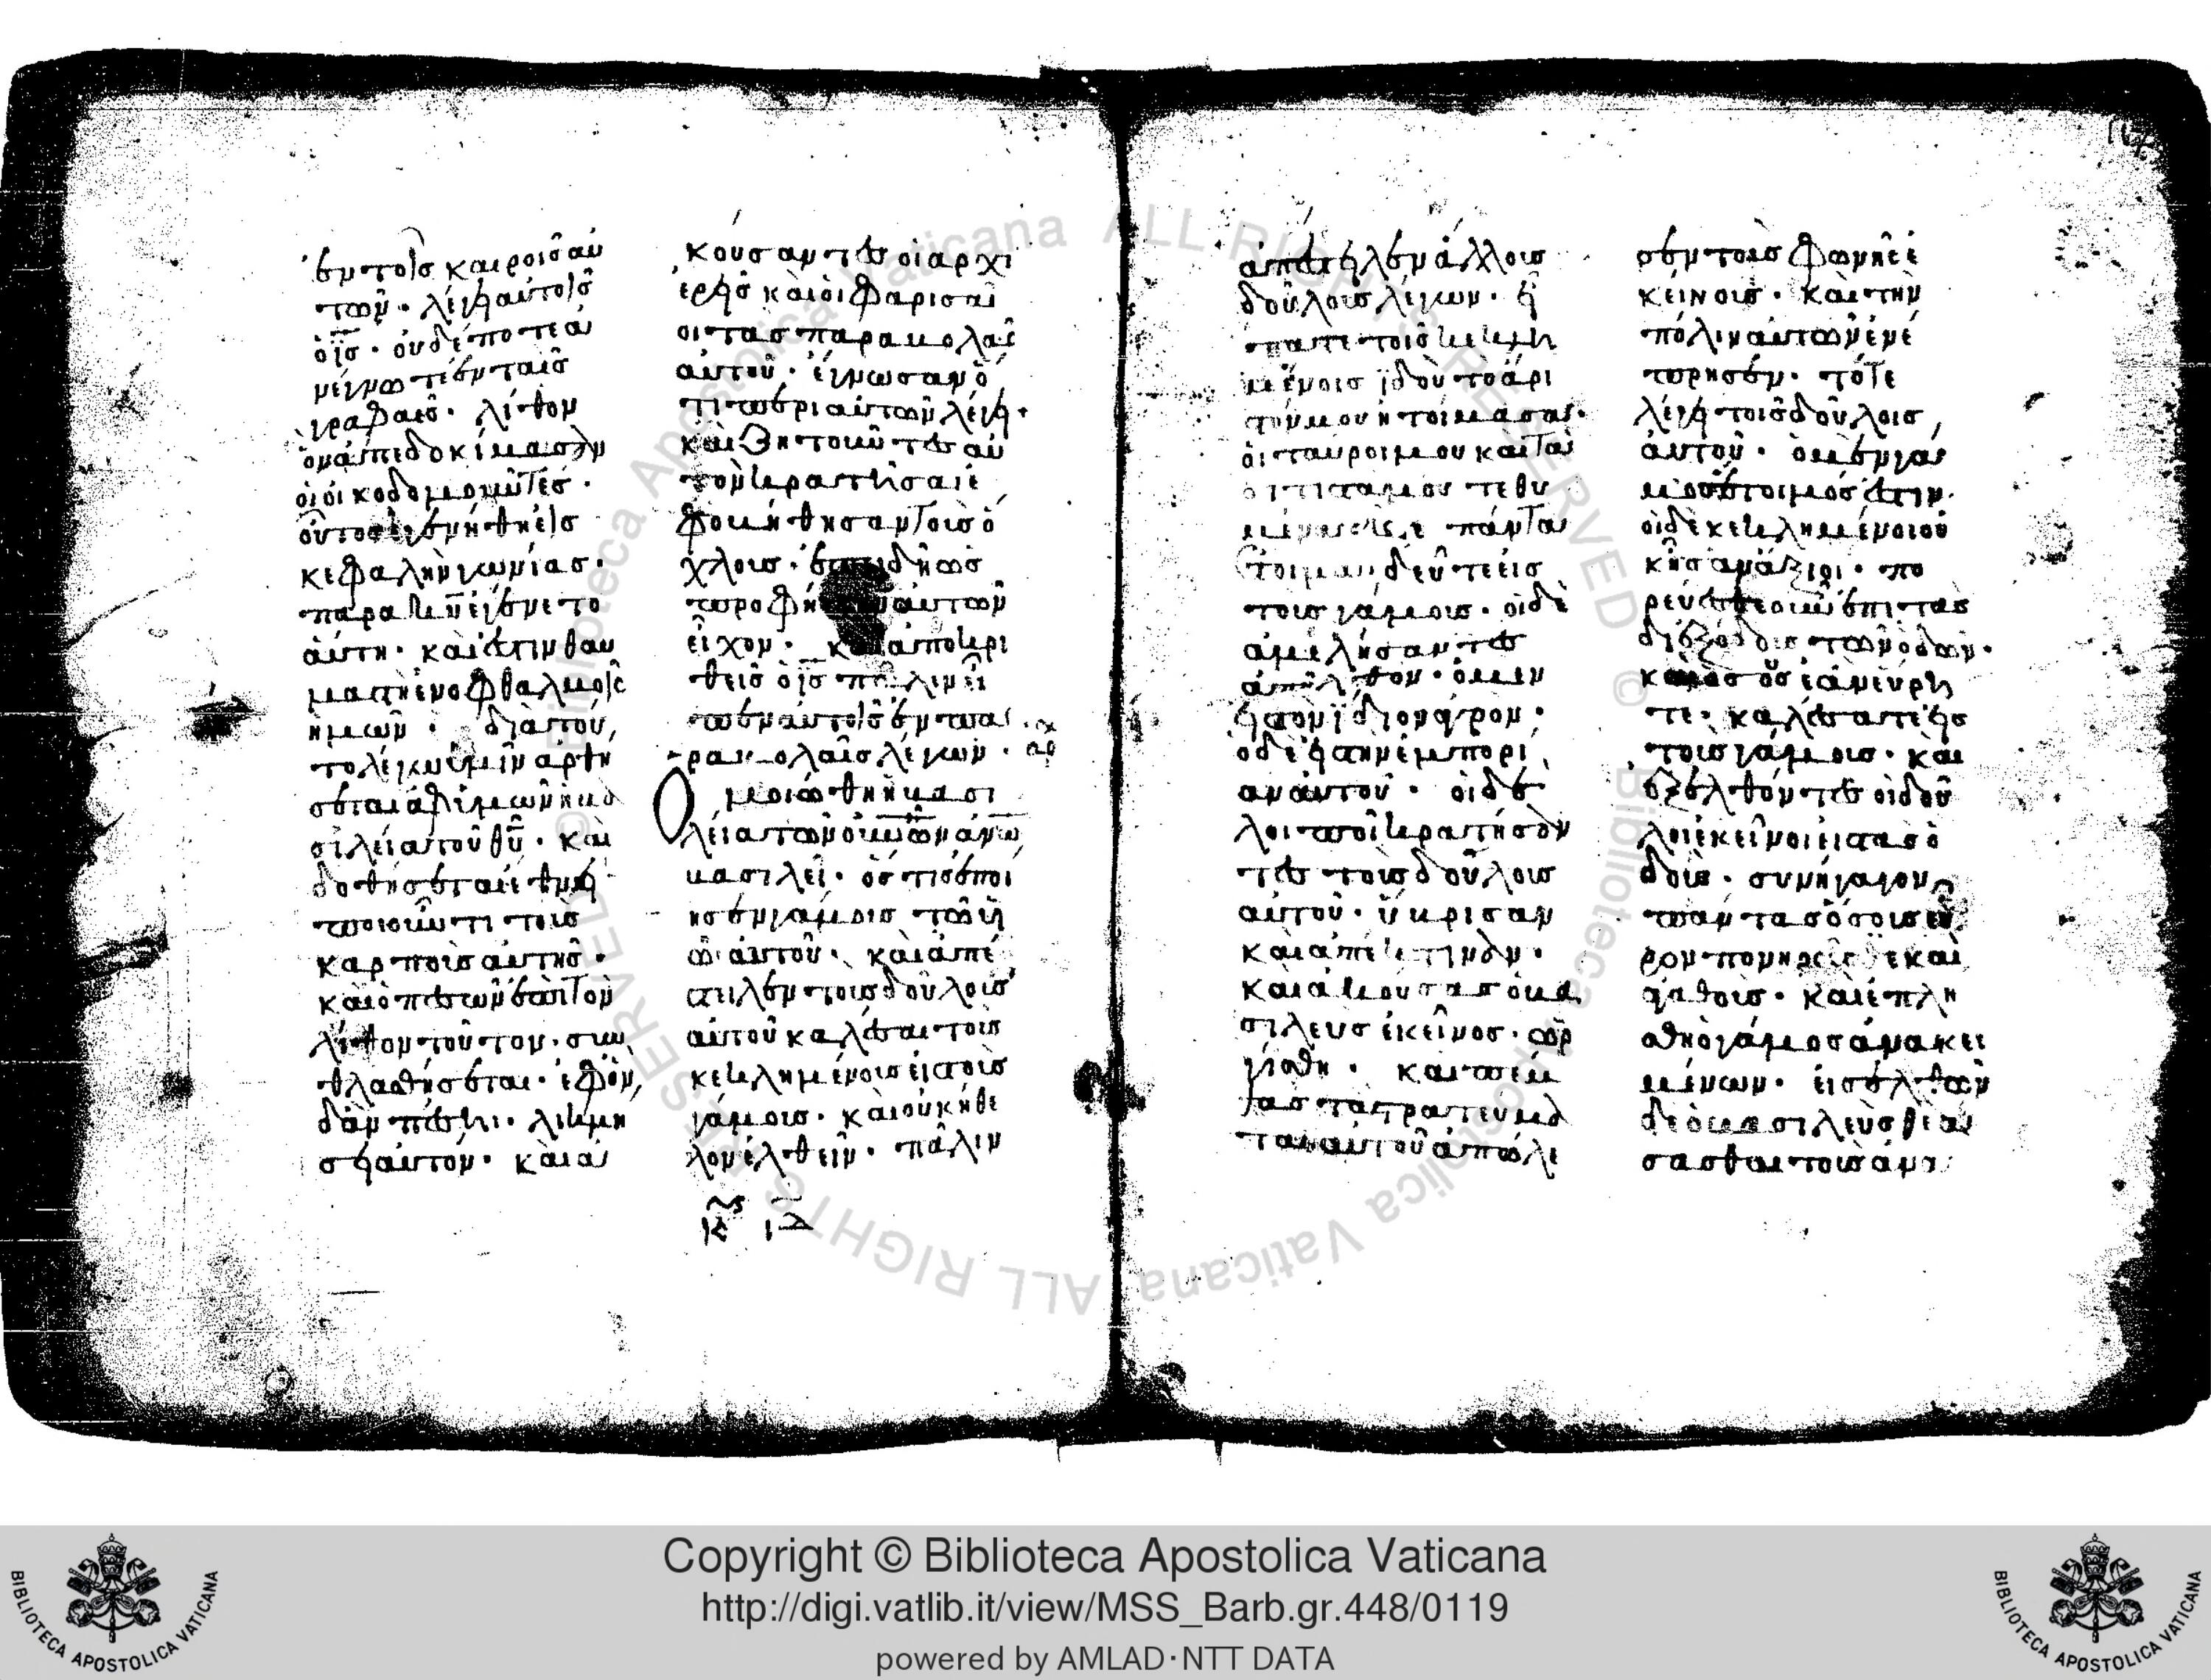 ἐν τοῖς καιροῖς αὐ
τῶν · λέγει αὐτοῖς
ὁ ι̅ς̅ · οὐδέποτε ἀ
νέγνωτε ἐν ταῖς
γραφαῖς · λίθον
ὃν ἀπεδοκίμασαν
οἱ οἰκοδομοῦντες ·
οὗτος ἐγενήθη εἰς
κεφαλὴν γωνίας ·
παρὰ κ̅υ̅ ἐγένετο
αὕτη · καὶ ἔστιν θαυ
μαστὴ ἐν ὀφθαλμοῖς
ἡμῶν · διὰ τοῦ
το λέγω ὑμῖν ἀρθή
σεται ἀφ' ὑμῶν ἡ βα
σιλεία τοῦ θ̅υ̅ · καὶ
δοθήσεται ἔθνει
ποιοῦντι τοὺς
καρποὺς αὐτῆς ·
καὶ ὁ πεσὼν ἐπὶ τὸν
λίθον τοῦτον · συν
θλασθήσεται · ἐφ' ὃν
δ' ἂν πέσῃ · λικμή
σει αὐτόν · καὶ ἀ
κούσαντες οἱ ἀρχι
ερεῖς καὶ οἱ φαρισαῖ
οι τὰς παραβολὰς
αὐτοῦ · ἔγνωσαν ὅ
τι περὶ αὐτῶν λέγει ·
καὶ ζητοῦντες αὐ
τὸν κρατῆσαι ἐ
φοβήθησαν τοὺς ὄ
χλους · ἐπειδὴ ὡς
προφήτην αὐτὸν
εἶχον · καὶ ἀποκρι
θεὶς ὁ ι̅ς̅ πάλιν εἶ
πεν αὐτοῖς ἐν πα
ραβολαῖς λέγων · αρχ
Ὁμοιώθη ἡ βασι
λεία τῶν ο̅υ̅ν̅ω̅ν̅ α̅ν̅ω̅
βασιλεῖ · ὅστις ἐποί
ησεν γάμους τῷ υἱ
ῷ αὐτοῦ · καὶ ἀπέ
στειλεν τοὺς δούλους
αὐτοῦ καλέσαι τοὺς
κεκλημένους εἰς τοὺς
γάμους · καὶ οὐκ ἤθε
λον ἐλθεῖν · πάλιν
ἀπέστειλεν ἄλλους
δούλους λέγων · εἴ
πατε τοῖς κεκλη
μένοις ἰδοὺ τὸ ἄρι
στόν μου ἡτοίμασα ·
οἱ ταῦροί μου καὶ τὰ
σιτιστά μου τεθυ
μένα πάντα
ἕτοιμα δεῦτε εἰς
τοὺς γάμους · οἱ δὲ
ἀμελήσαντες
ἀπῆλθον · ὁ μὲν
εἰς τὸν ἴδιον ἀγρόν ·
ὁ δὲ εἰς τὴν ἐμπορί
αν αὐτοῦ · οἱ δὲ
λοιποὶ κρατήσαν
τες τοὺς δούλους
αὐτοῦ · ὕβρισαν
καὶ ἀπέκτειναν ·
καὶ ἀκούσας ὁ βα
σιλεὺς ἐκεῖνος · ὠρ
γίσθη · καὶ πέμ
ψας τὰ στρατεύμα
τα αὐτοῦ ἀπώλε
σεν τοὺς φονεῖς ἐ
κείνους · καὶ τὴν
πόλιν αὐτῶν ἐνέ
πρησεν · τότε
λέγει τοῖς δούλοις
αὐτοῦ · ὁ μὲν γά
μος ἕτοιμός ἐστιν ·
οἱ δὲ κεκλημένοι οὐ
κ ἦσαν ἄξιοι · πο
ρεύεσθε οὖν ἐπὶ τὰς
διεξόδους τῶν ὁδῶν ·
καὶ ὅσους ἐὰν εὕρη
τε · καλέσατε εἰς
τοὺς γάμους · καὶ
ἐξελθόντες οἱ δοῦ
λοι ἐκεῖνοι εἰς τὰς ὁ
δοὺς · συνήγαγον
πάντας ὅσους εὗ
ρον πονηρούς τε καὶ
ἀγαθούς · καὶ ἐπλή
σθη ὁ γάμος ἀνακει
μένων · εἰσελθὼν
δὲ ὁ βασιλεὺς θεά
σασθαι τοὺς ἀνα
Copyright © Biblioteca Apostolica Vaticana
http://digi.vatlib.it/view/MSS_Barb.gr.448/0119
powered by AMLAD·NTT DATA
BIBLIOTECA APOSTOLICA VATICANA
BIBLIOTECA APOSTOLICA VATICANA